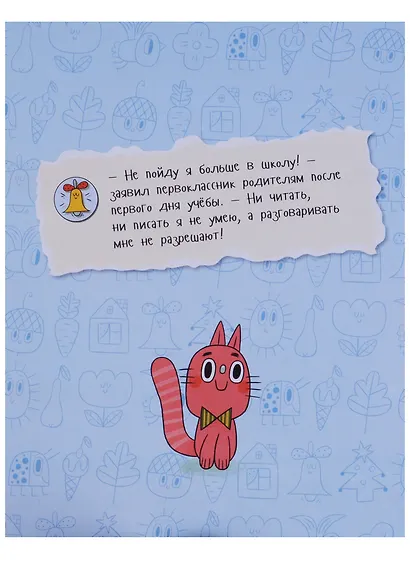 — Не пойду я больше в школу! —
заявил первоклассник родителям после
первого дня учёбы. — Ни читать,
ни писать я не умею, а разговаривать
мне не разрешают!